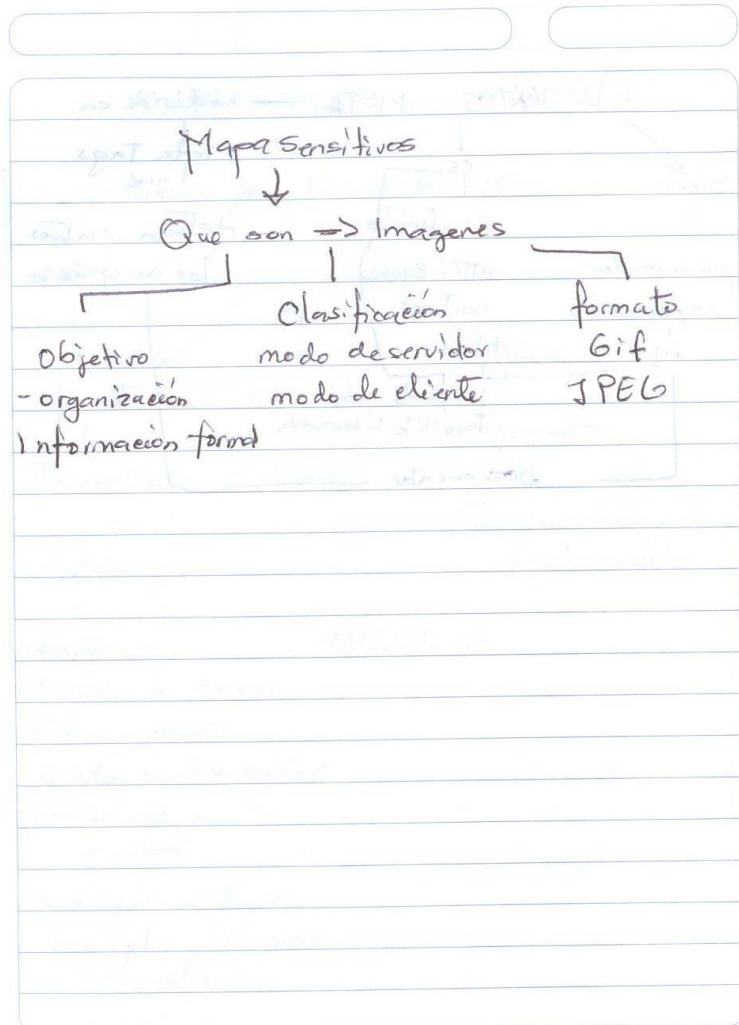 Mapa Sensitivos
Que son => Imagenes
Objetivo
- organización
Información formal
Clasificación
modo de servidor
modo de cliente
formato
Gif
JPEG